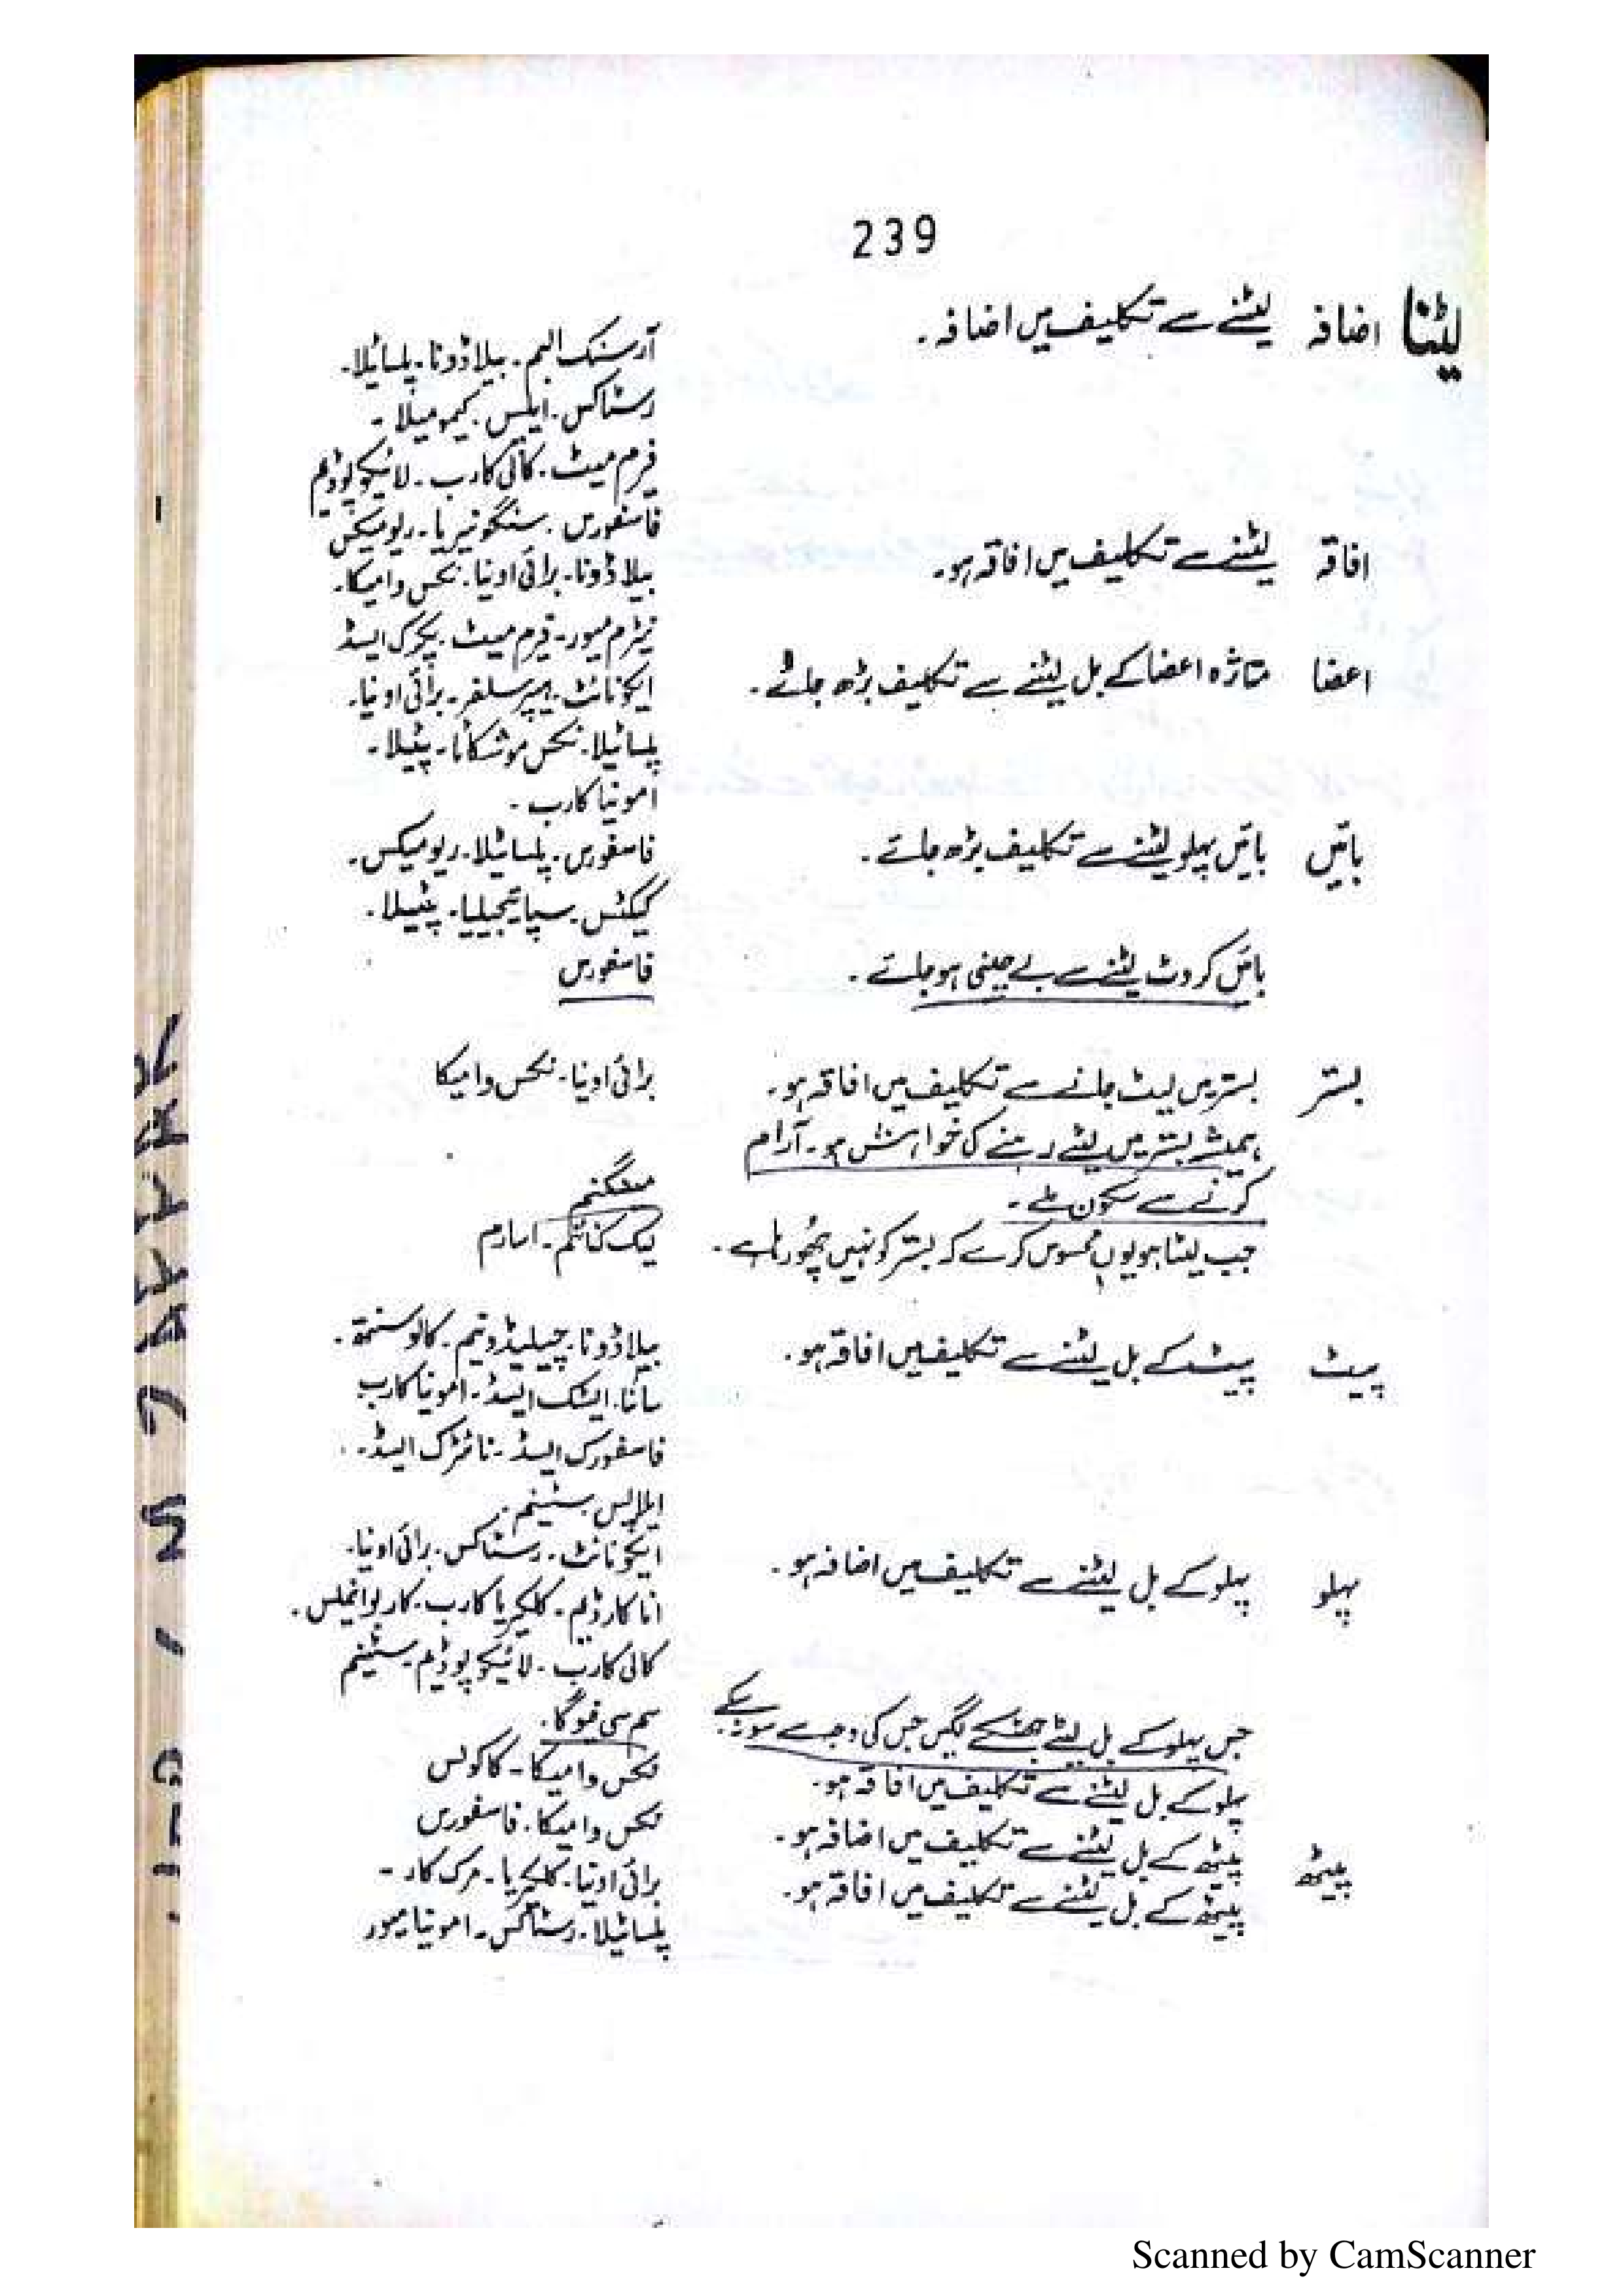 239
لیٹنا اضافہ لیٹنے سے تکلیف میں اضافہ۔ آرسنک البم۔ بیلاڈونا۔ پلساٹیلا۔
رسٹاکس۔ ایپس۔ کیمومیلا۔
فرم میٹ۔ کالی کارب۔ لائیکوپوڈیم
فاسفورس۔ سنگونیریا۔ ریومیکس
افاقہ لیٹنے سے تکلیف میں افاقہ ہو۔ بیلاڈونا۔ برائی اونیا۔ نکس وامیکا۔
نیٹرم میور۔ فرم میٹ۔ پکرک ایسڈ
اعضا متاثرہ اعضا کے بل لیٹنے سے تکلیف بڑھ جائے۔ ایکونائٹ۔ ہیپر سلفر۔ برائی اونیا۔
پلساٹیلا۔ نکس موشکاٹا۔ پٹیلا۔
امونیا کارب۔
بائیں بائیں پہلو لیٹنے سے تکلیف بڑھ جائے۔ فاسفورس۔ پلساٹیلا۔ ریومیکس۔
کیکٹس۔ سپائیجیلیا۔ پٹیلا۔
بائیں کروٹ لیٹنے سے بے چینی ہو جائے۔ فاسفورس
بستر بستر میں لیٹ جانے سے تکلیف میں افاقہ ہو۔ برائی اونیا۔ نکس وامیکا
ہمیشہ بستر میں لیٹے رہنے کی خواہش ہو۔ آرام
کرنے سے سکون ملے۔
جب لیٹا ہو یوں محسوس کرے کہ بستر کو نہیں چھو رہا ہے۔ لیک کنائنم۔ اسارم
پیٹ پیٹ کے بل لیٹنے سے تکلیف میں افاقہ ہو۔ بیلاڈونا۔ چیلیڈونیم۔ کالوسنتھ۔
سائنا۔ ایسٹک ایسڈ۔ امونیا کارب
فاسفورک ایسڈ۔ نائٹرک ایسڈ۔
ایلاپس۔ سٹینم۔
پہلو پہلو کے بل لیٹنے سے تکلیف میں اضافہ ہو۔ ایکونائٹ۔ رسٹاکس۔ برائی اونیا۔
اناکارڈیم۔ کلکیریا کارب۔ کاربوانیملس۔
کالی کارب۔ لائیکوپوڈیم۔ سٹینم
جس پہلو کے بل لیٹے جھٹکے لگیں جس کی وجہ سے سو نہ سکے۔ سم سی فیوگا۔
پہلو کے بل لیٹنے سے تکلیف میں افاقہ ہو۔ نکس وامیکا۔ کاکولس
پیٹھ پیٹھ کے بل لیٹنے سے تکلیف میں اضافہ ہو۔ نکس وامیکا۔ فاسفورس
پیٹھ کے بل لیٹنے سے تکلیف میں افاقہ ہو۔ برائی اونیا۔ کلکیریا۔ مرک کار۔
پلساٹیلا۔ رسٹاکس۔ امونیا میور
Scanned by CamScanner